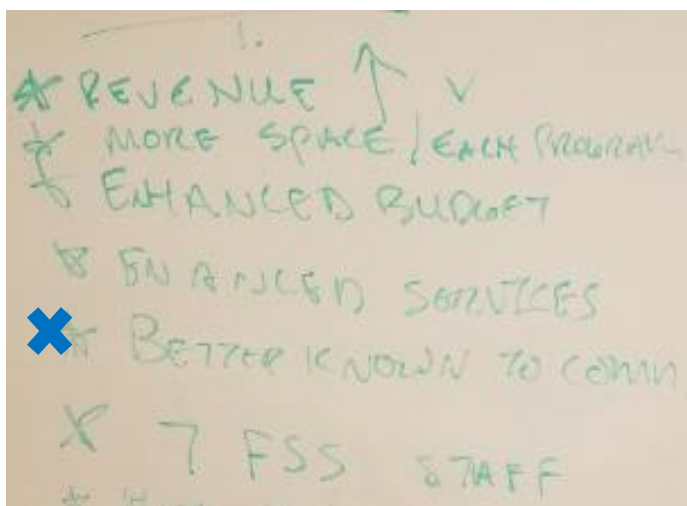 1.
* REVENUE ↑ v
* MORE SPACE / EACH PROGRAM
* ENHANCED BUDGET
* ENANCED SERVICES
* BETTER KNOWN TO COMM
* 7 FSS STAFF